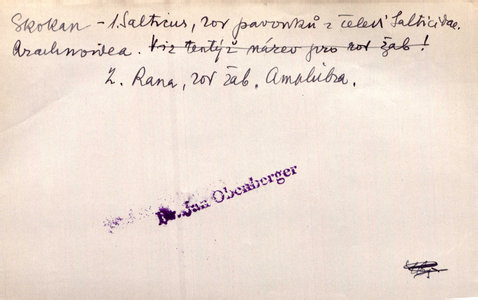 Skokan - 1. Salticus, rod pavouků z čeledi Salticidae.
Arachnoidea. Viz tentýž název pro rod žab!
2. Rana, rod žab. Amphibia.
Dr. Jan Obenberger